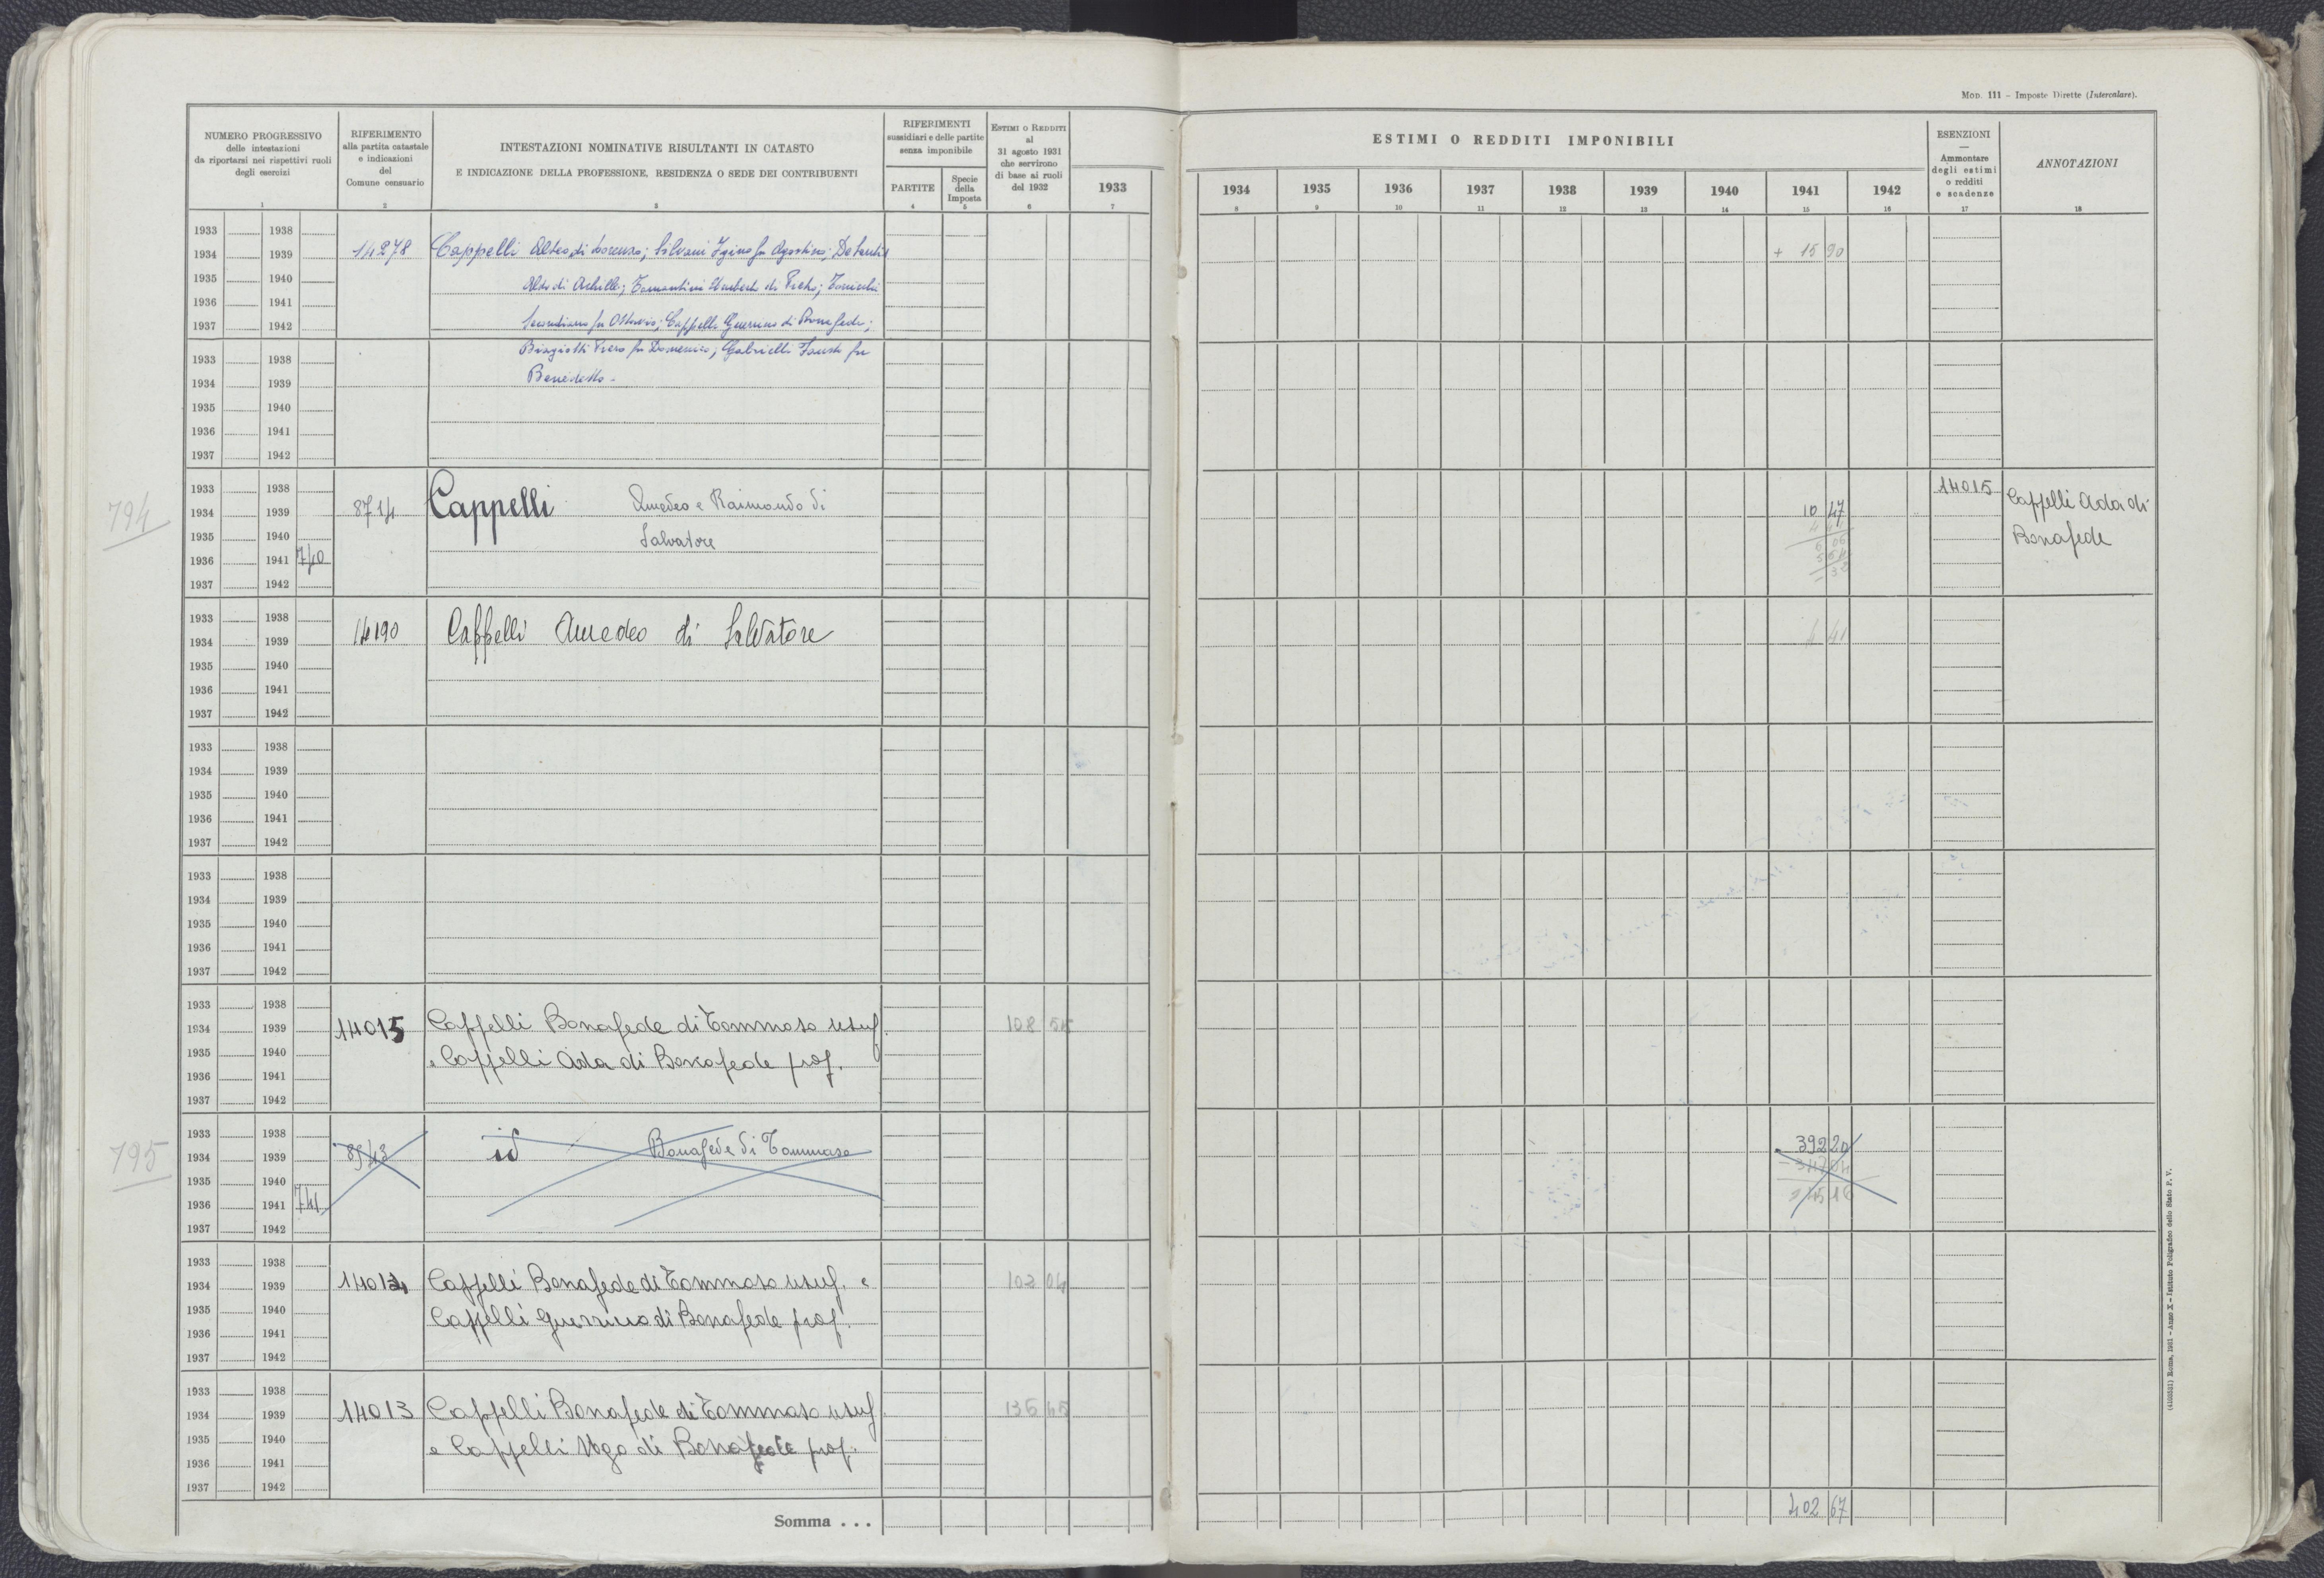 Mod. 111 – Imposte Dirette (Intercalare).
NUMERO PROGRESSIVO
delle intestazioni
da riportarsi nei rispettivi ruoli
degli esercizi
1
RIFERIMENTO
alla partita catastale
e indicazioni
del
Comune censuario
2
INTESTAZIONI NOMINATIVE RISULTANTI IN CATASTO
E INDICAZIONE DELLA PROFESSIONE, RESIDENZA O SEDE DEI CONTRIBUENTI
3
RIFERIMENTI
sussidiari e delle partite
senza imponibile
PARTITE
4
Specie
della
Imposta
5
ESTIMI O REDDITI
al
31 agosto 1931
che servirono
di base ai ruoli
del 1932
6
1933
7
ESTIMI O REDDITI IMPONIBILI
1934 1935 1936 1937 1938 1939 1940 1941 1942
8 9 10 11 12 13 14 15 16
ESENZIONI
—
Ammontare
degli estimi
o redditi
e scadenze
17
ANNOTAZIONI
18
1933 1938
1934 1939 14278 Cappelli Alteo di Lorenzo; Silvani Igino fu Agostino; De Santis + 15 90
1935 1940 Aldo di Achille; Umberto di
1936 1941
1937 1942 fu Ottavio; Cappelli Guerrino di Bonafede;
1933 1938 Biagiotti Piero fu Domenico; Gabrielli Fausto fu
1934 1939 Benedetto.
1935 1940
1936 1941
1937 1942
794
1933 1938 14015
1934 1939 8714 Cappelli Amedeo e Raimondo di 10 47 Cappelli Ada di
1935 1940 Salvatore Bonafede
1936 1941 740
1937 1942
1933 1938
1934 1939 14190 Cappelli Amedeo di Salvatore 4 41
1935 1940
1936 1941
1937 1942
1933 1938
1934 1939
1935 1940
1936 1941
1937 1942
1933 1938
1934 1939
1935 1940
1936 1941
1937 1942
1933 1938
1934 1939 14015 Cappelli Bonafede di Tommaso usuf.
1935 1940 e Cappelli Ada di Bonafede prop.
1936 1941
1937 1942
795
1933 1938
1934 1939 id Bonafede di Tommaso 392 20
1935 1940
1936 1941 741
1937 1942
1933 1938
1934 1939 14014 Cappelli Bonafede di Tommaso usuf. e
1935 1940 Cappelli Guerrino di Bonafede prop.
1936 1941
1937 1942
1933 1938
1934 1939 14013 Cappelli Bonafede di Tommaso usuf.
1935 1940 e Cappelli Ugo di Bonafede prop.
1936 1941
1937 1942
Somma . . . 402 67
Roma, 1931 – Anno X – Istituto Poligrafico dello Stato P. V.